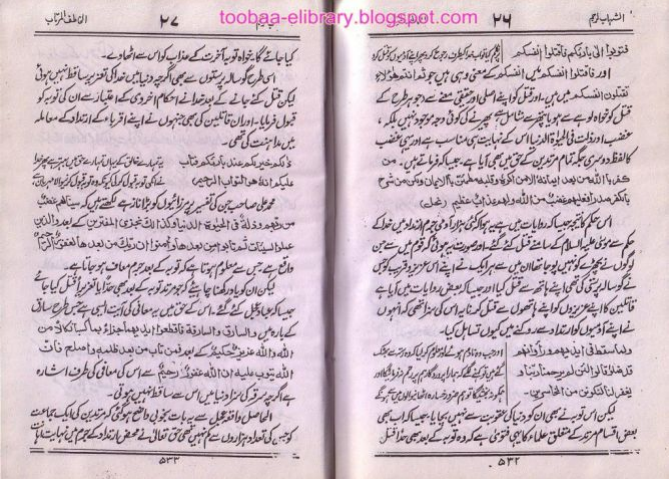 toobaa-elibrary.blogspot.com
الشہاب لرجم
۲۶
فتوبوا الیٰ بارئکم فاقتلوا انفسکم
اور فاقتلوا انفسکم میں انفسکم کے معنی وہی ہیں جو ثم انتم ھؤلاء
تقتلون انفسکم میں ہیں۔ اور قتل کو اپنے اصلی اور حقیقی معنے سے (جو ہر طرح کے
قتل کو خواہ لوہے سے ہو یا پتھر سے شامل ہے) پھیرنے کی کوئی وجہ موجود نہیں بلکہ
غضب اور ذلت فی الحیوۃ الدنیا اس کے نہایت ہی مناسب ہے اور یہی غضب
کا لفظ دوسری جگہ تمام مرتدین کے حق میں بھی آیا ہے۔ جیسا کہ فرماتے ہیں۔ من
کفر باللہ من بعد ایمانہ الا من اکرہ وقلبہ مطمئن بالایمان ولکن من شرح
بالکفر صدرا فعلیھم غضب من اللہ ولھم عذاب عظیم (نحل)
اس حکم کا نتیجہ جیسا کہ روایات میں ہے یہ ہوا کہ کئی ہزار آدمی جرم ارتداد میں خدا کے
حکم سے موسیٰ علیہ السلام کے سامنے قتل کئے گئے۔ اور صورت یہ ہوئی کہ قوم میں سے جن
لوگوں نے بچھڑے کو نہیں پوجا تھا ان میں سے ہر ایک نے اپنے اس عزیز و قریب کو جس
نے گوسالہ پرستی کی تھی اپنے ہاتھ سے قتل کیا اور جیسا کہ بعض روایات میں آیا ہے
قاتلین کا اپنے عزیزوں کو اپنے ہاتھوں سے قتل کرنا یہ اس کی سزا تھی کہ انہوں
نے اپنے آدمیوں کو ارتداد سے روکنے میں کیوں تساہل کیا۔
ولما سقط فی ایدیھم وراوا انھم
قد ضلوا قالوا لئن لم یرحمنا ربنا و
یغفر لنا لنکونن من الخاسرین۔
لیکن اس توبہ نے بھی ان کو دنیا کی عقوبت سے نہیں بچایا۔ جیسا کہ اب بھی
بعض اقسام مرتد کے متعلق علماء کا یہی فتویٰ ہے کہ وہ توبہ کے بعد بھی حداً قتل
۵۳۲
۲۷
الخاطف المرتاب
کیا جائے گا۔ خواہ توبہ آخرت کے عذاب کو اس سے اٹھا دے۔
اسی طرح گوسالہ پرستوں سے بھی اگرچہ دنیا میں خدائی تعزیر ساقط نہیں ہوئی
لیکن قتل کئے جانے کے بعد خدا نے احکام اخروی کے اعتبار سے ان کی توبہ کو
قبول فرمایا۔ اور ان قاتلین کی بھی جنہوں نے اپنے اقرباء کے ارتداد کے معاملہ
میں مداہنت کی تھی۔
ذلکم خیر لکم عند بارئکم فتاب
علیکم انہ ھو التواب الرحیم
محمد علی صاحب جن کی تفسیر پر مرزائیوں کو بڑا ناز ہے لکھتے ہیں کہ سینالھم غضب
من ربھم وذلۃ فی الحیوۃ الدنیا وکذالک نجزی المفترین کے بعد والذین
عملوا السیئات ثم تابوا من بعدھا واٰمنوا ان ربک من بعدھا لغفور رحیم
واقع ہے۔ جس سے معلوم ہوتا ہے کہ توبہ کے بعد جرم معاف ہو جاتا ہے۔
لیکن ان کو یاد رکھنا چاہیئے کہ جو مرتد توبہ کے بعد بھی حداً یا تعزیراً قتل کیا جائے
جیسا کہ قتل کئے گئے۔ اس کے حق میں یہ معافی کی آیت ایسی ہے جس طرح سارق
کے بارہ میں والسارق والسارقۃ فاقطعوا ایدیھما جزاءً بما کسبا نکالا من
اللہ واللہ عزیز حکیم کے بعد فمن تاب من بعد ظلمہ واصلح فان
اللہ یتوب علیہ ان اللہ غفور رحیم سے اس کی معافی کی طرف اشارہ
ہے اگرچہ سرقہ کی سزا دنیا میں اس سے ساقط نہیں ہوتی۔
الحاصل واقعہ عجل سے یہ بات بخوبی واضح ہوگئی کہ مرتدین کی ایک جماعت
کو جس کی تعداد ہزاروں سے کم نہیں تھی حق تعالیٰ نے محض ارتداد کے جرم میں نہایت اہانت
۵۳۳